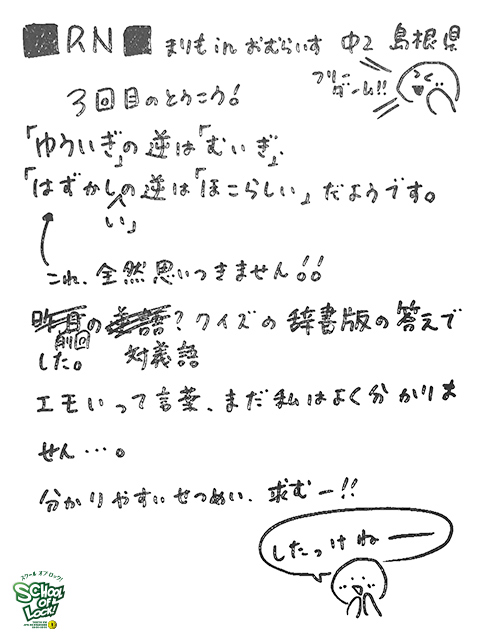 RN まりも in おむらいす 中2 島根県
フリーダーム!!
3回目のとうこう!
「ゆういぎ」の逆は「むいぎ」、
「はずかしい」の逆は「ほこらしい」だようです。
これ、全然思いつきません!!
前回の対義語?クイズの辞書版の答えで
した。
エモいって言葉、まだ私はよく分かりま
せん…。
分かりやすいせつめい、求むー!!
したっけねー
スクール オブ ロック!
SCHOOL OF LOCK!